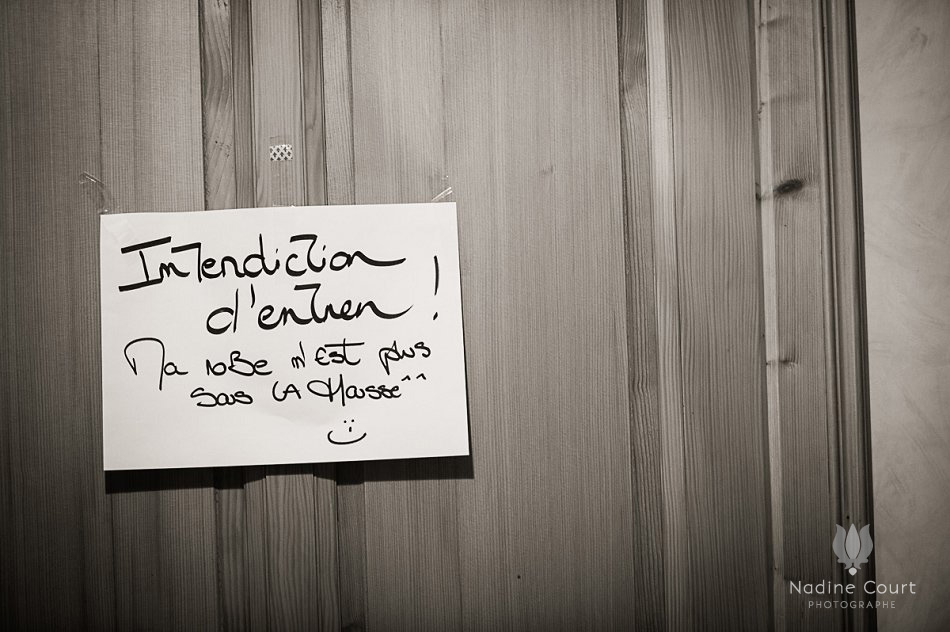 Interdiction
d'entrer !
Ma robe n'est plus
sous la Housse ^^
Nadine Court
PHOTOGRAPHE